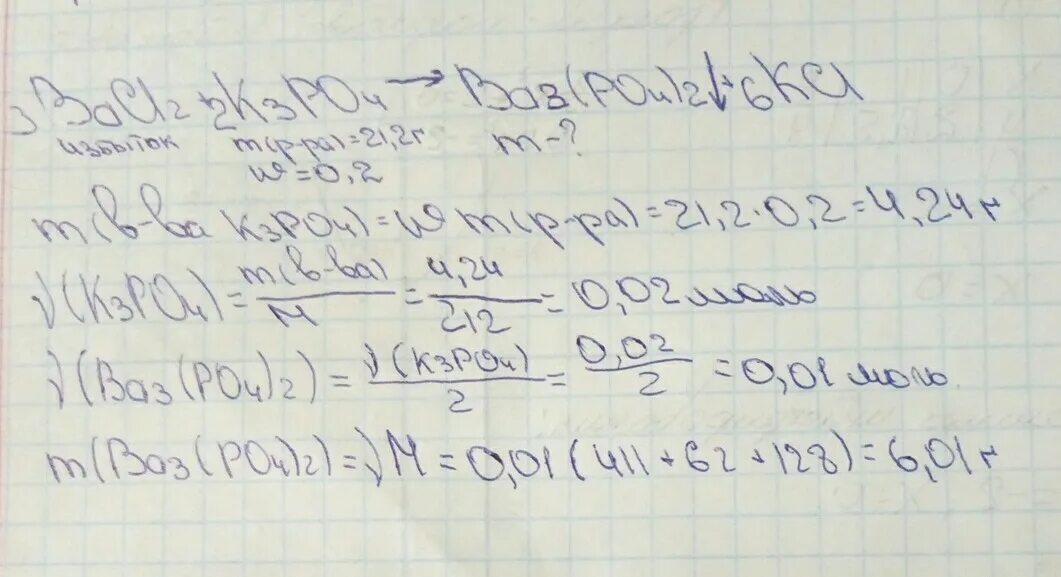 3BaCl2 + 2K3PO4 → Ba3(PO4)2↓ + 6KCl
избыток m(р-ра)=21,2г m-?
w=0,2
m(в-ва K3PO4)=w m(р-ра)=21,2·0,2=4,24г
ν(K3PO4)=m(в-ва)/M=4,24/212=0,02моль
ν(Ba3(PO4)2)=ν(K3PO4)/2=0,02/2=0,01моль.
m(Ba3(PO4)2)=νM=0,01(411+62+128)=6,01г